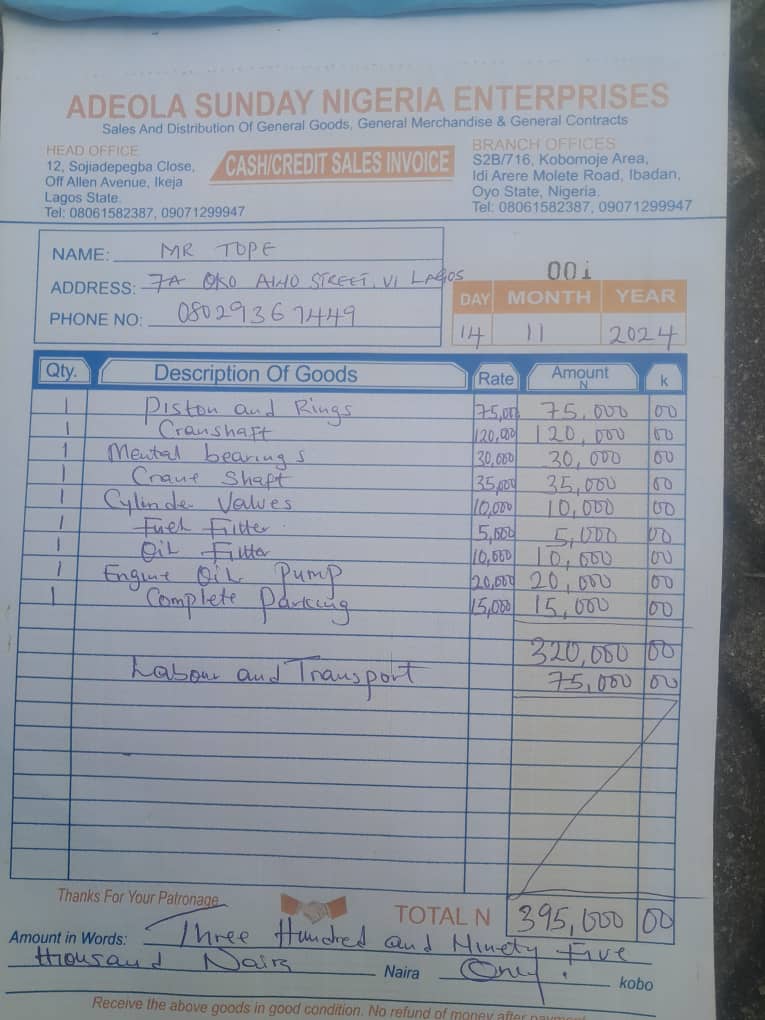 ADEOLA SUNDAY NIGERIA ENTERPRISES
Sales And Distribution Of General Goods, General Merchandise & General Contracts
HEAD OFFICE
12, Sojiadepegba Close,
Off Allen Avenue, Ikeja
Lagos State.
Tel: 08061582387, 09071299947
CASH/CREDIT SALES INVOICE
BRANCH OFFICES
S2B/716, Kobomoje Area,
Idi Arere Molete Road, Ibadan,
Oyo State, Nigeria.
Tel: 08061582387, 09071299947
NAME: MR TOPE
ADDRESS: 7A OKO AWO STREET, VI LAGOS
PHONE NO: 08029367449
001
DAY MONTH YEAR
14 11 2024
Qty. Description Of Goods Rate Amount N k
1 Piston and Rings 75,000 75,000 00
1 Cranshaft 120,000 120,000 00
1 Mental bearings 30,000 30,000 00
1 Crane Shaft 35,000 35,000 00
1 Cylinder Valves 10,000 10,000 00
1 Fuel Filter 5,000 5,000 00
1 Oil Filter 10,000 10,000 00
1 Engine Oil Pump 20,000 20,000 00
1 Complete Parking 15,000 15,000 00
320,000 00
Labour and Transport 75,000 00
Thanks For Your Patronage
TOTAL N 395,000 00
Amount in Words: Three Hundred and Ninety Five
thousand Naira Naira Only. kobo
Receive the above goods in good condition. No refund of money after payment